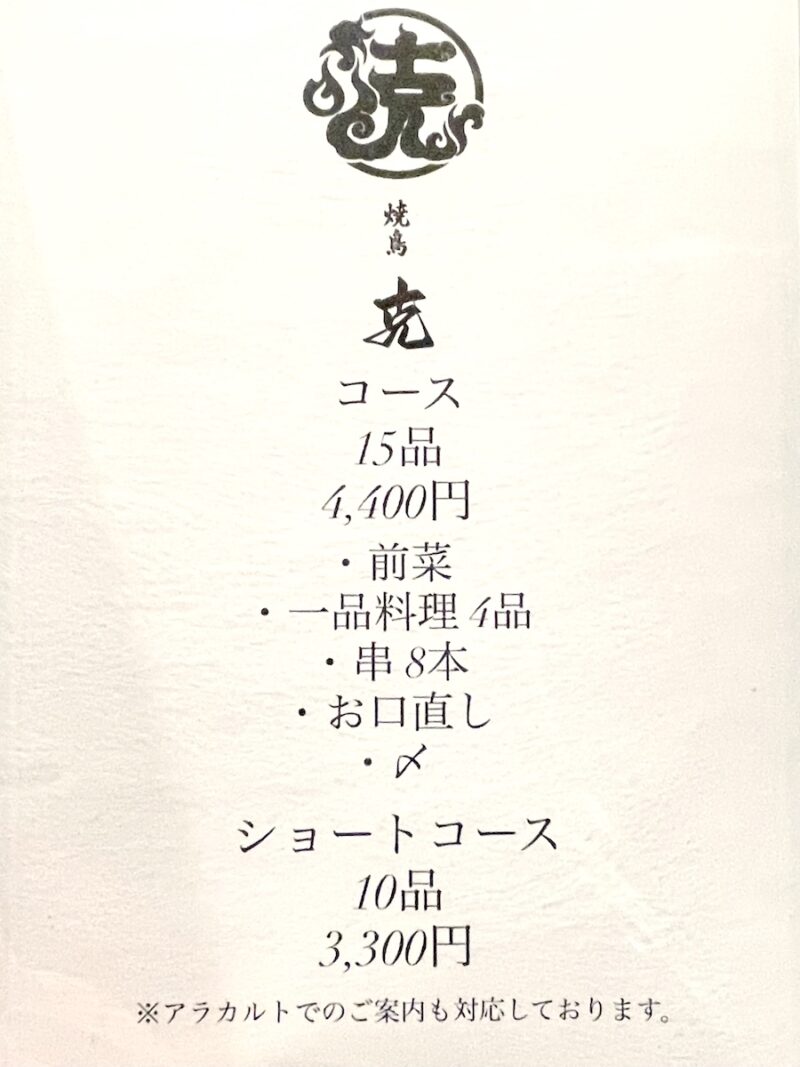 克
焼鳥
克
コース
15品
4,400円
・前菜
・一品料理 4品
・串 8本
・お口直し
・〆
ショートコース
10品
3,300円
※アラカルトでのご案内も対応しております。